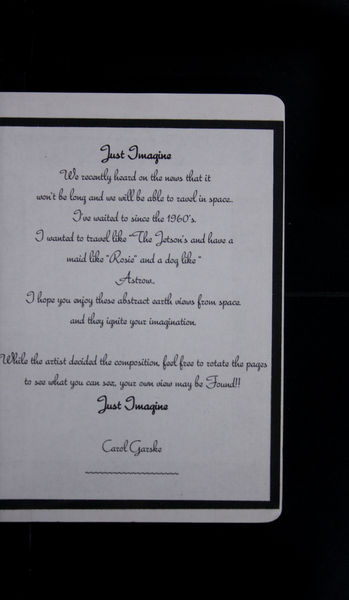 Just Imagine
We recently heard on the news that it
won't be long and we will be able to ravel in space..
I've waited to since the 1960's.
I wanted to travel like "The Jetson's and have a
maid like "Rosie" and a dog like "
Astrow..
I hope you enjoy these abstract earth views from space.
and they ignite your imagination.
While the artist decided the composition, feel free to rotate the pages
to see what you can see, your own view may be Found!!
Just Imagine
Carol Garske